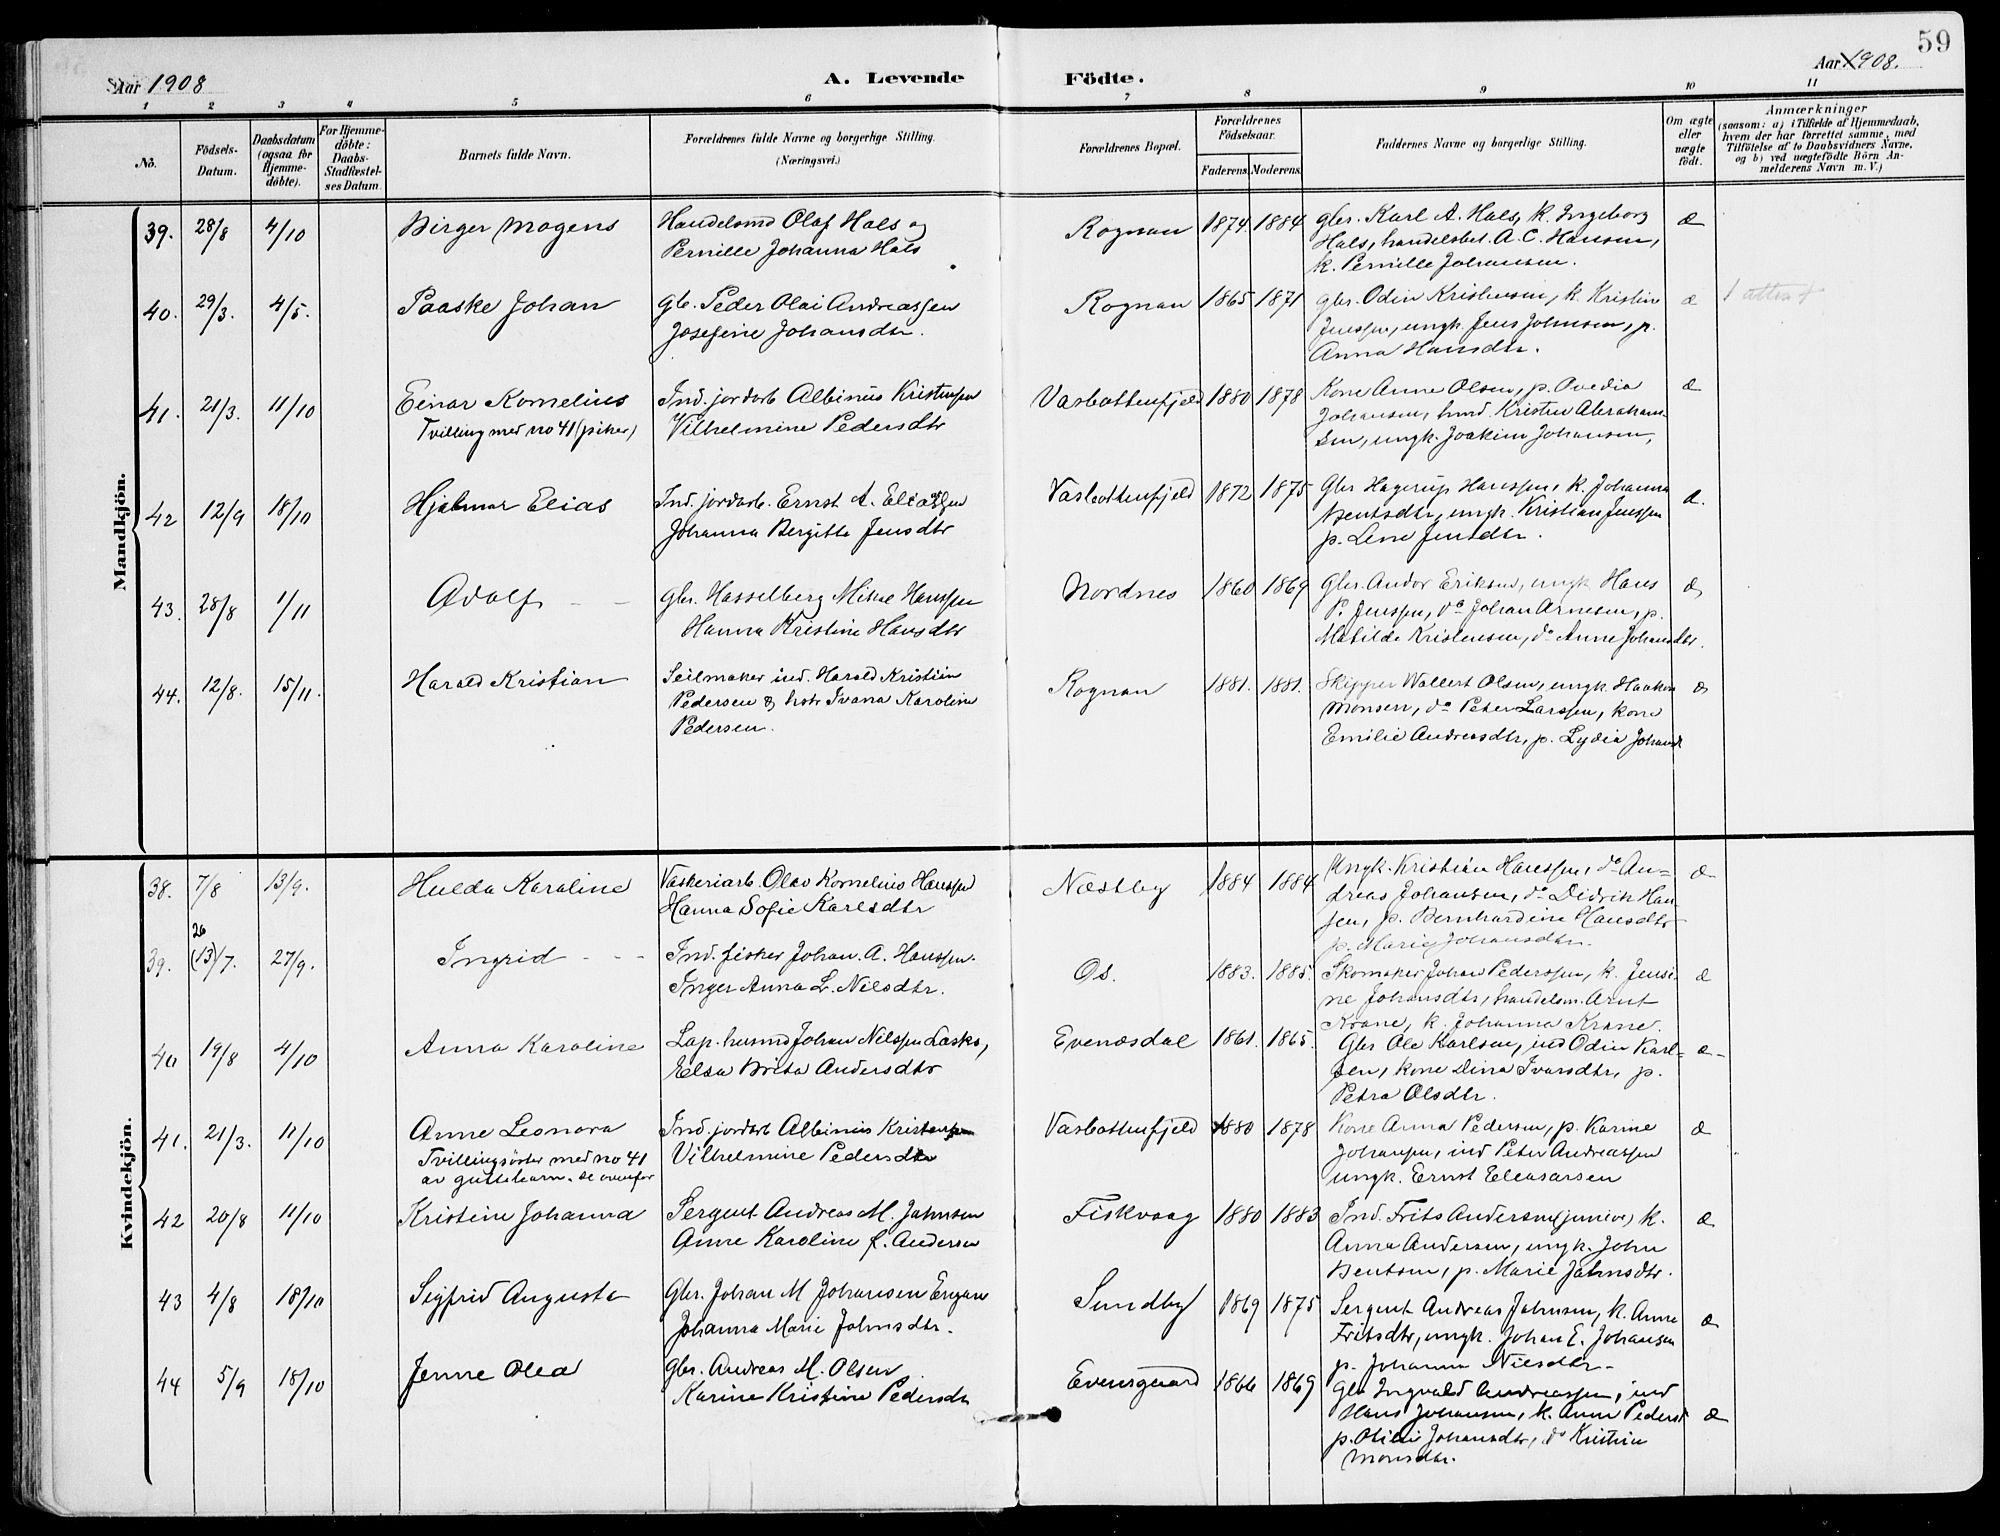 59
Aar 1908
A. Levende
Födte.
Aar 1908.
1 2 3 4 5 6 7 8 9 10 11
No.
Födsels-Datum.
Daabsdatum (ogsaa for Hjemme-döbte).
For Hjemme-döbte: Daabs-Stadfæstel-ses Datum.
Barnets fulde Navn.
Forældrenes fulde Navne og borgerlige Stilling.
(Næringsvei.)
Forældrenes Bopæl.
Forældrenes Födselsaar.
Faderens. Moderens.
Faddernes Navne og borgerlige Stilling.
Om ægte eller uægte födt.
Anmærkninger
(saasom: a) i Tilfælde af Hjemmedaab,
hvem der har forrettet samme, med
Tilföielse af to Daabsvidners Navne,
og b) ved uægtefödte Börn An-
melderens Navn m. V.)
Mandkjön.
39. 28/8 4/10 Birger Mogens
Handelsmd Olaf Hals og
Pernille Johanna Hals
Rognan 1874 1884
gbr. Karl A. Hals, k. Ingeborg
Hals, handelsbet. A. C. Hansen,
k. Pernille Johansen.
æ
40. 29/3. 4/5. Paaske Johan
gb. Peder Olai Andreassen
Josefine Johansdtr.
Rognan 1865 1871
gbr. Odin Kristensen, k. Kristine
Jenssen, ungk. Jens Johnsen, p.
Anna Hansdtr.
æ 1 attest
41. 21/3. 11/10 Einar Kornelius
Tvilling med no 41 (piker)
Ind. jordarb Albinus Kristensen
Vilhelmine Pedersdtr
Vasbottenfjeld 1880 1878
Kone Anne Olsen, p. Ovedia
Johansen, husmd. Kristen Abraham-
sen, ungk. Joakim Johansen,
æ
42 12/9 18/10 Hjalmar Elias
Ind. jordarb. Ernst A. Eliassen
Johanna Bergitte Jensdtr
Vasbottenfjeld 1872 1875
Gbr Hagerup Hanssen, k. Johanna
Bentsdtr, ungk. Kristian Jenssen
p. Lene Jensdtr.
æ.
43. 28/8 1/11 Adolf - -
gbr. Hasselberg Mikal Hanssen
Hanna Kristine Hansdtr
Nordnes 1860 1869
Gbr. Andor Eriksen, ungk Hans
P. Jenssen, do Johan Arnesen, p.
Matilde Kristensen, do Anne Johansdtr.
æ
44. 12/8. 15/11. Harald Kristian
Seilmaker ind. Harald Kristian
Pedersen & hstr Ivana Karoline
Pedersen.
Rognan 1881. 1881.
Skipper Wallert Olsen, ungk. Haakon
Monsen, do Peter Larssen, kone
Emilie Andreasdtr, p. Lydia Johansd
æ
Kvindekjön.
38. 7/8 13/9. Hulda Karoline
Væskeriarb. Olav Kornelius Hanssen
Hanna Sofie Karlsdtr
Næstby 1884 1884
Ungk. Kristian Hanssen, do An-
dreas Johansen, do Didrik Han-
sen, p. Bernhardine Hansdtr
p. Marie Johansdtr.
æ
39. 26 (13)/7. 27/9. Ingrid - - -
Ind. fisker Johan A. Hanssen.
Inger Anna L. Nilsdtr.
Os. 1883. 1885.
Skomaker Johan Pederssen, k. Jensi-
ne Johansdtr, handelsm. Arnt
Krane, k. Johanna Krane.
æ
40 19/8 4/10 Anna Karoline
Lap. husmd Johan Nilssen Lasko,
Elsa Brita Andersdtr
Evenesdal 1861. 1865.
Gbr Ole Karlsen, ind Odin Karl-
sen, kone Dina Ivarsdtr, p.
Petra Olsdtr.
æ-
41. 21/3. 11/10 Anne Leonora
Tvillingsöster med no 41
av guttebarn. se ovenfor
Ind. jordarb Albinus Kristensen
Vilhelmine Pedersdtr
Vasbottenfjeld 1880 1878
Kone Anna Pedersen, p. Karine
Johanssen, ind Peter Andreassen
ungk. Ernst Eleasarsen
æ
42 20/8 11/10 Kristine Johanna
Sergent Andreas M. Jahnsen
Anne Karoline f. Andersen
Fiskvaag 1880 1883
Ind. Frits Andersen (junior) k.
Anna Andersen, ungk. John
Bentsen, p. Marie Jahnsdtr.
æ
43 4/8 18/10 Sigfrid Augusta
Gbr. Johan M Johansen Engan
Johanna Marie Johnsdtr.
Sundby 1869 1875
Sergent Andreas Jahnsen, k. Anne
Fritsdtr, ungk. Johan E. Johansen
p. Johanna Nilsdtr.
æ
44 5/9 18/10 Jenne Olea
Gbr. Andreas M. Olsen
Karine Kristine Pedersdt
Evensgaard 1866 1869
Gbr Ingvald Andreassen, ind
Hans Johansen, k. Anne Pedersd
p. Otilie Johansdtr, do Kristine
Monsdtr.
æ